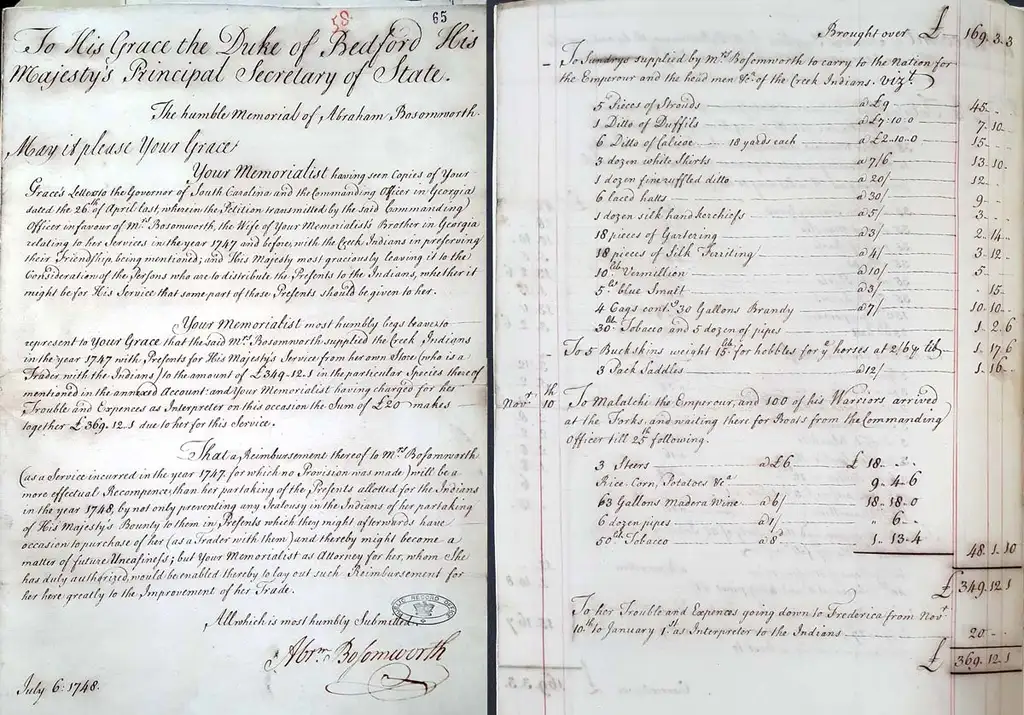 58
65
To His Grace the Duke of Bedford His
Majesty's Principal Secretary of State.
The humble Memorial of Abraham Bosomworth.
May it please Your Grace,
Your Memorialist having seen Copies of Your
Grace's Letters to the Governor of South Carolina and the Commanding Officer in Georgia
dated the 26th of April last, wherein the Petition transmitted by the said Commanding
Officer in favour of Mrs Bosomworth, the Wife of Your Memorialist's Brother in Georgia
relating to her Services in the year 1747 and before, with the Creek Indians in preserving
their Friendship, being mentioned; and His Majesty most graciously leaving it to the
Consideration of the Persons who are to distribute the Presents to the Indians, whether it
might be for His Service that some part of those Presents should be given to her.
Your Memorialist most humbly begs leave to
represent to Your Grace that the said Mrs Bosomworth supplied the Creek Indians
in the year 1747 with Presents for His Majesty's Service from her own Store (who is a
Trader with the Indians) to the amount of £349-12.1 in the particular Species there of
mentioned in the annexed Account: and Your Memorialist having charged for her
Trouble and Expences as Interpreter on this occasion the Sum of £20 makes
together £369.12.1 due to her for this Service.
That a Reimbursement thereof to Mrs Bosomworth
(as a Service incurred in the year 1747 for which no Provision was made) will be a
more effectual Recompence than her partaking of the Presents allotted for the Indians
in the year 1748, by not only preventing any Jealousy in the Indians of her partaking
of His Majesty's Bounty to them in Presents which they might afterwards have
occasion to purchase of her (as a Trader with them) and thereby might become a
matter of future Uneasiness; but Your Memorialist as Attorney for her, whom She
has duly authorized, would be enabled thereby to lay out such Reimbursement for
her here greatly to the Improvement of her Trade.
All which is most humbly Submitted.
PUBLIC RECORD OFFICE
Abrm Bosomworth
July 6. 1748.
Brought over £ 169.3.3
- To Sundrys supplied by Mrs Bosomworth to carry to the Nation for
the Emperour and the head men &c. of the Creek Indians. vizt.
5 Pieces of Strouds a £9 45 - -
1 Ditto of Duffils a £7.10.0 7-10-
6 Ditto of Calicoe 18 yards each a £2.10.0 15 - -
3 dozen white Shirts a 7/6 13-10
1 dozen fine ruffled ditto a 20/ 12 - -
6 laced hatts a 30/ 9 - -
1 dozen silk handkerchiefs a 5/ 3 - -
18 pieces of Gartering a 3/ 2-14
18 pieces of Silk Ferriting a 4/ 3-12-
10 lb Vermillion a 10/ 5 - -
5 lb blue Smalt a 3/ - 15-
4 Cags contg 30 Gallons Brandy a 7/ 10.10-
30 lb Tobacco and 5 dozen of pipes 1.2.6
- To 5 Buckskins weight 15 lb for hobbles for ye horses at 2/6 p lb 1.17.6
3 Pack Saddles a 12/ 1.16-
Novr 10th To Malatchi the Emperour, and 100 of his Warriors arrived
at the Forks, and waiting there for Boats from the Commanding
Officer till 25th following.
3 Steers a £6 £ 18 - -
Rice, Corn, Potatoes &ca 9-4-6
63 Gallons Madera Wine a 6/ 18-18-0
6 dozen pipes a 1/ " 6 - -
50 lb Tobacco a 8d 1.13-4
48.1.10
£ 349.12.1
To her Trouble and Expences going down to Frederica from Novr
10th to January 1st as Interpreter to the Indians 20 - -
£ 369.12.1